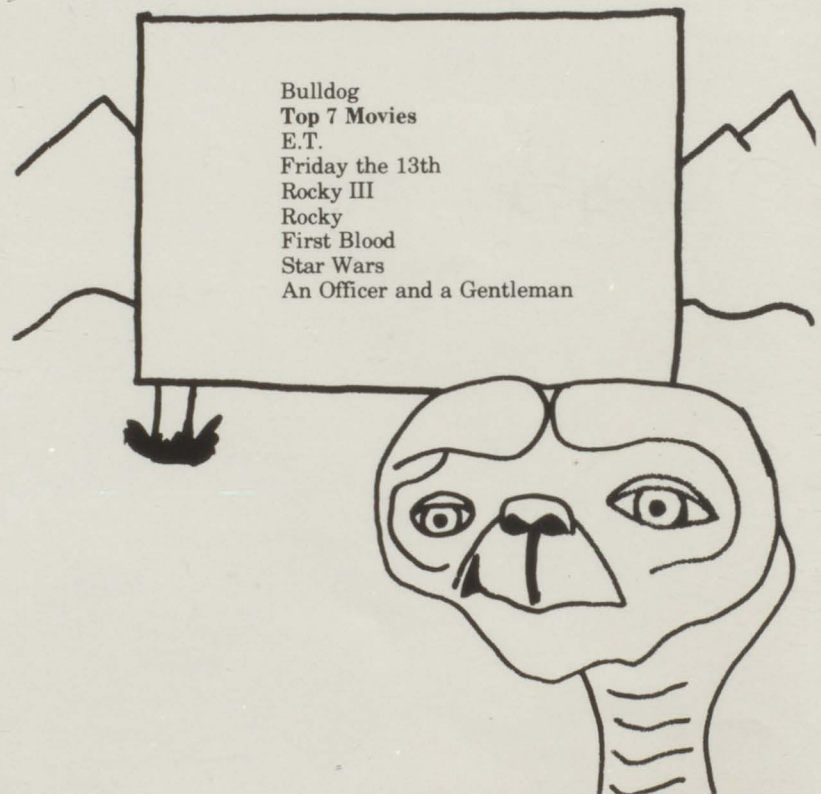 Bulldog
Top 7 Movies
E.T.
Friday the 13th
Rocky III
Rocky
First Blood
Star Wars
An Officer and a Gentleman